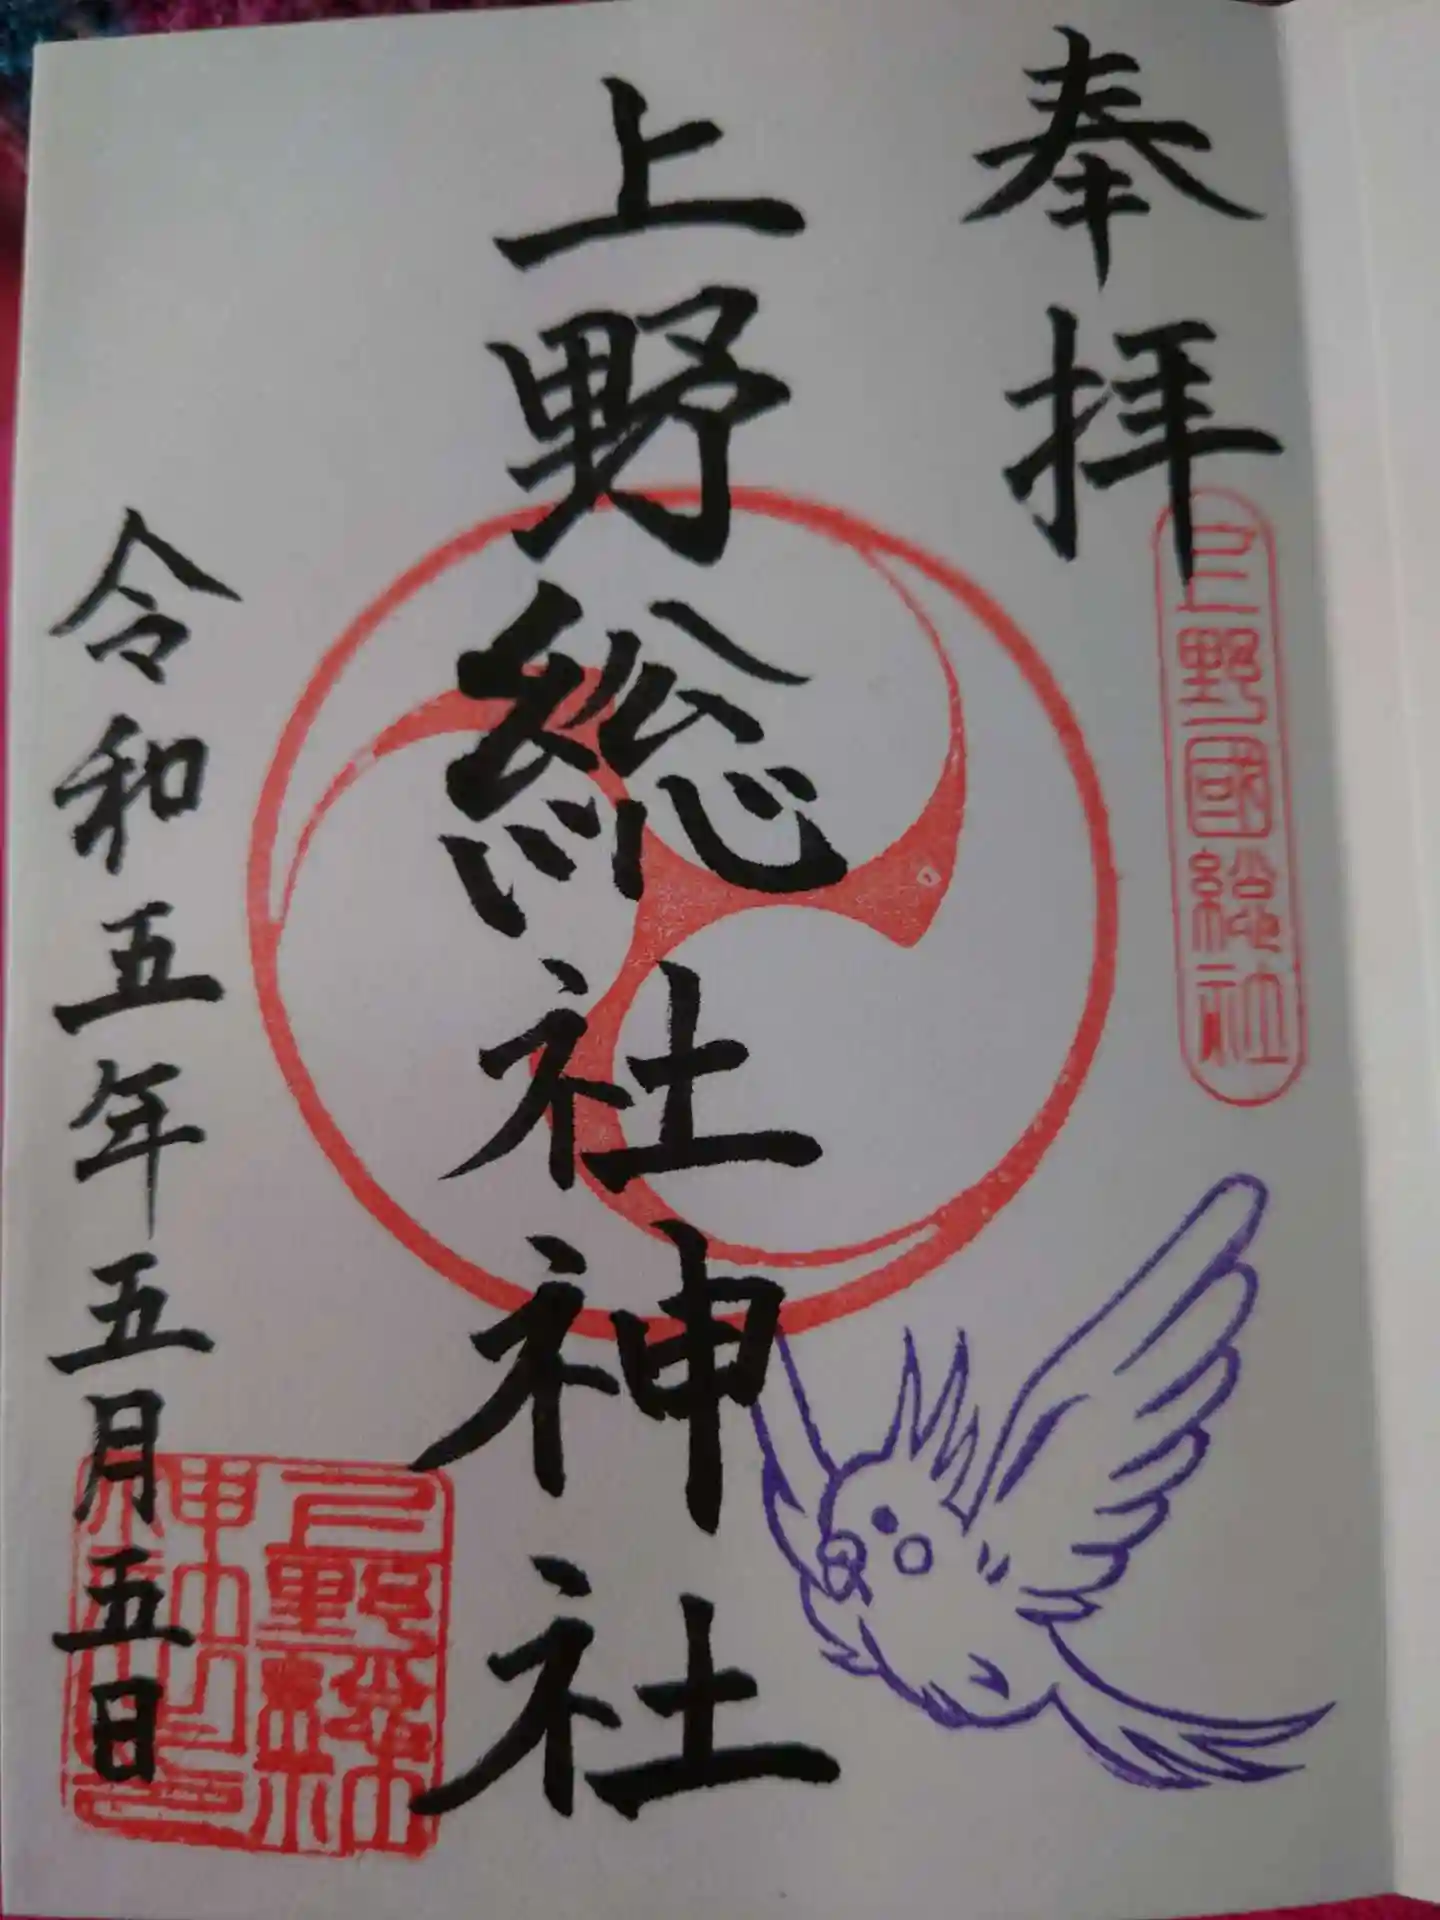 奉拝
上野國総社
上野総社神社
令和五年五月五日
上野総社
神社之印